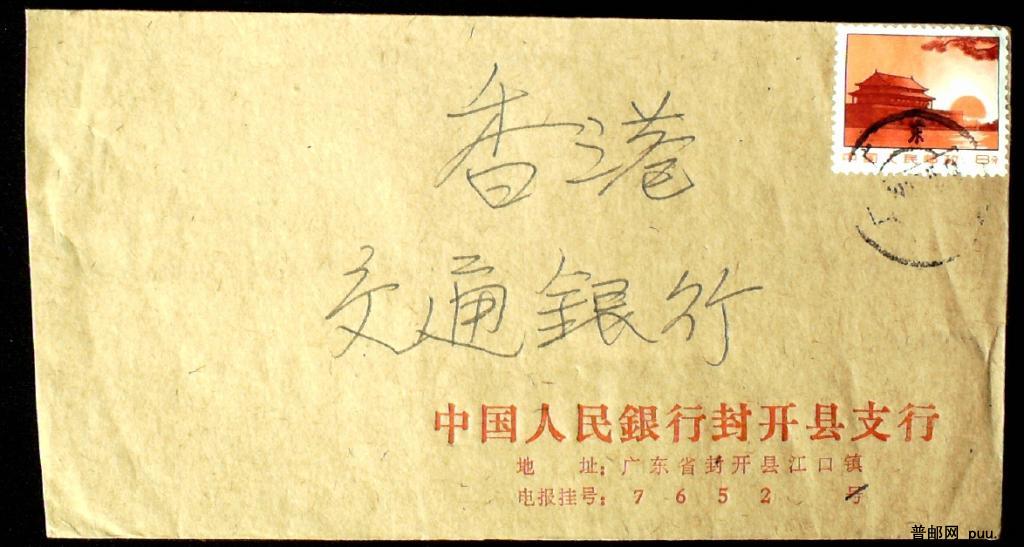 中国人民邮政 8分
东
香港
交通銀行
中国人民銀行封开县支行
地 址：广东省封开县江口镇
电报挂号：7 6 5 2 号
普邮网 puu.